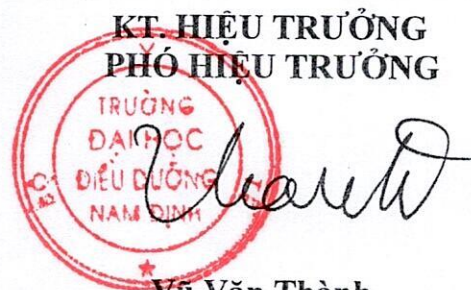 KT. HIỆU TRƯỞNG
PHÓ HIỆU TRƯỞNG
TRƯỜNG
ĐẠI HỌC
ĐIỀU DƯỠNG
NAM ĐỊNH
Vũ Văn Thành